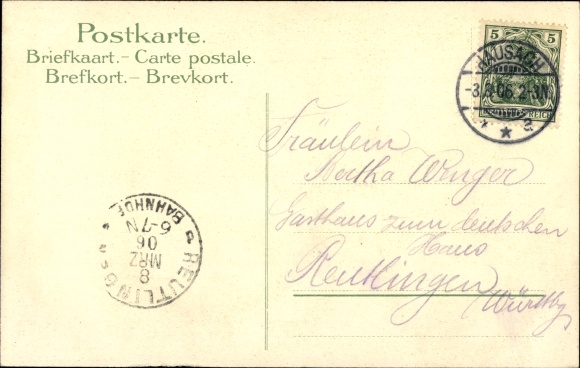 Postkarte.
Briefkaart.- Carte postale.
Brefkort.- Brevkort.
5 5
REICH
HAUSACH
06. 2-3N.
a
Fräulein
Bertha Wenger
Gasthaus zum deutschen
Haus
Reutlingen
Württbg
REUTLINGEN
BAHNHOF
6-7N
06
MRZ
8